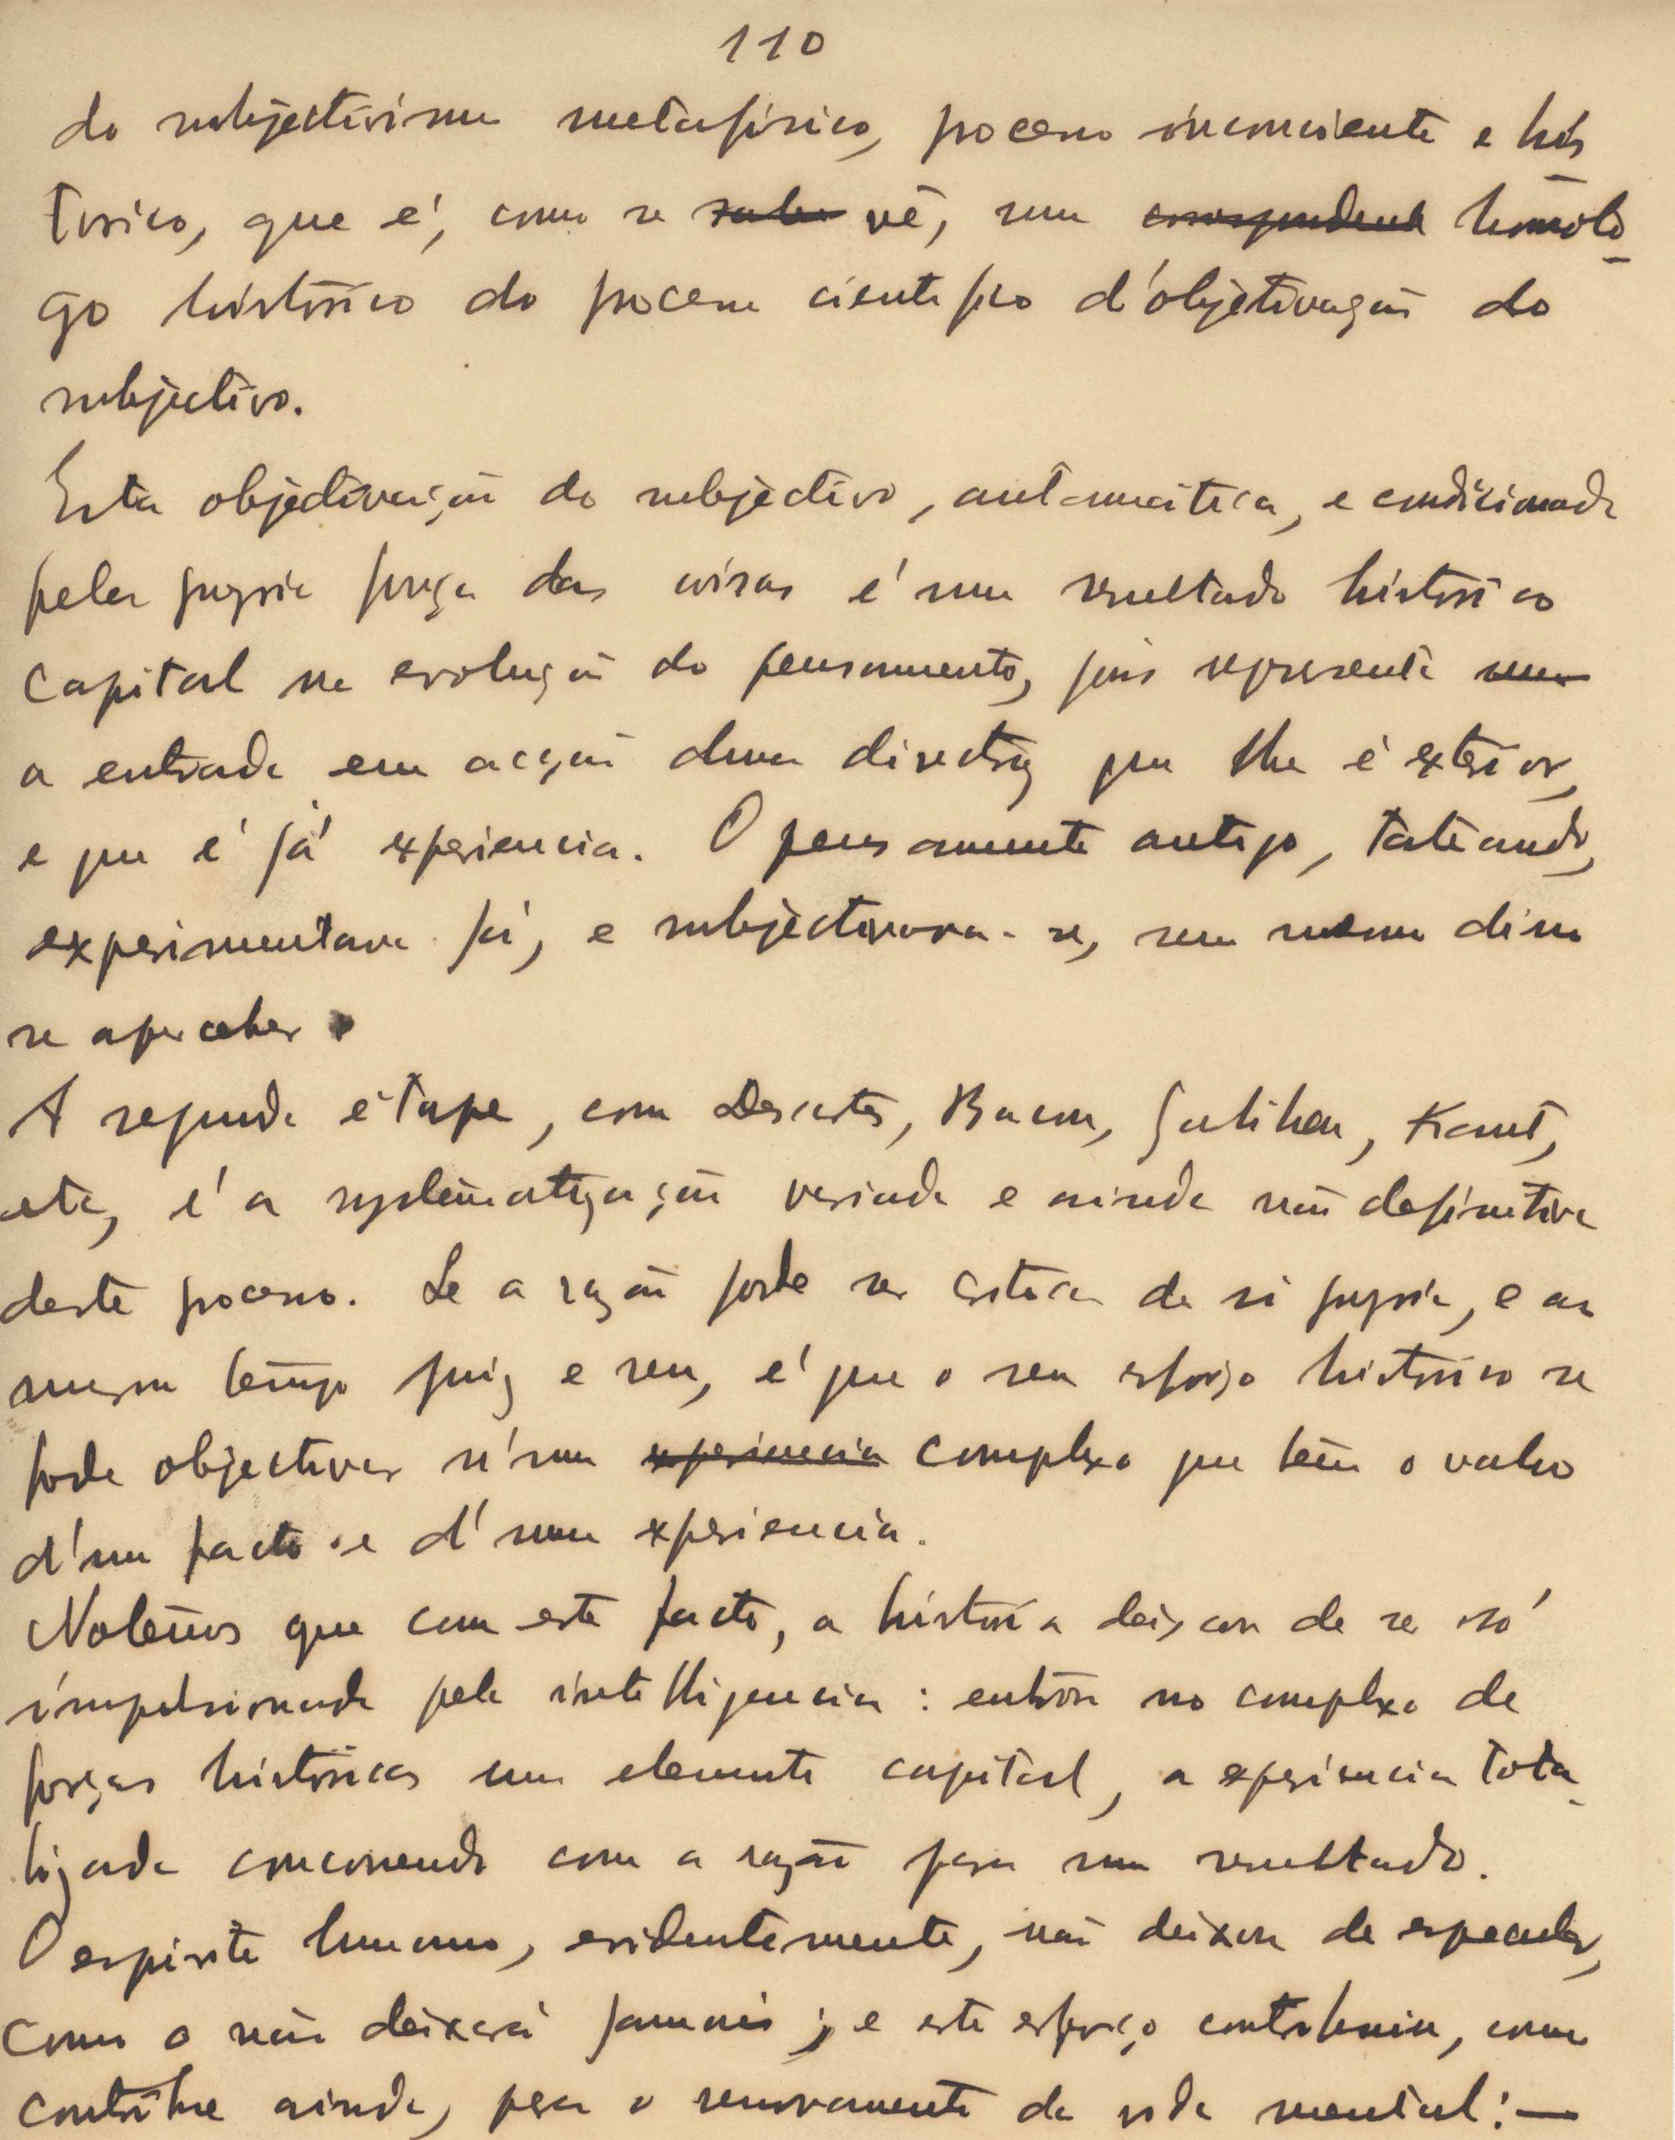 110
do subjectivismo metafísico, processo inconsciente e his
torico, que é, como se sabe vê, um correspondente homólo-
go histórico do processo cientifico d'objetivação do
subjectivo.
Esta objectivação do subjectivo, automática, e condicionada
pela propria força das coisas é um resultado histórico
capital na evolução do pensamento, pois representa uma
a entrada em acção duma directriz que lhe é exterior,
e que é já experiencia. O pensamento antigo, tateando,
experimentava já, e subjectivava-se, sem mesmo disso
se aperceber.
A segunda étape, com Descartes, Bacon, Galileu, Kant,
etc, é a systematização variada e ainda não definitiva
deste processo. Se a razão pode ser critica de si propria, e ao
mesmo tempo juiz e reu, é que o seu esforço histórico se
pode objectivar n'um experiencia complexo que tem o valor
d'um facto e d'uma experiencia.
Notemos que com este facto, a história deixou de ser só
impulsionada pela intelligencia: entrou no complexo de
forças históricas um elemento capital, a experiencia tota-
lizada concorrendo com a razão para um resultado.
O espirito humano, evidentemente, não deixou de especular,
como o não deixará jamais; e este esforço contribuiu, como
contribue ainda, para o renovamento da vida mental: —